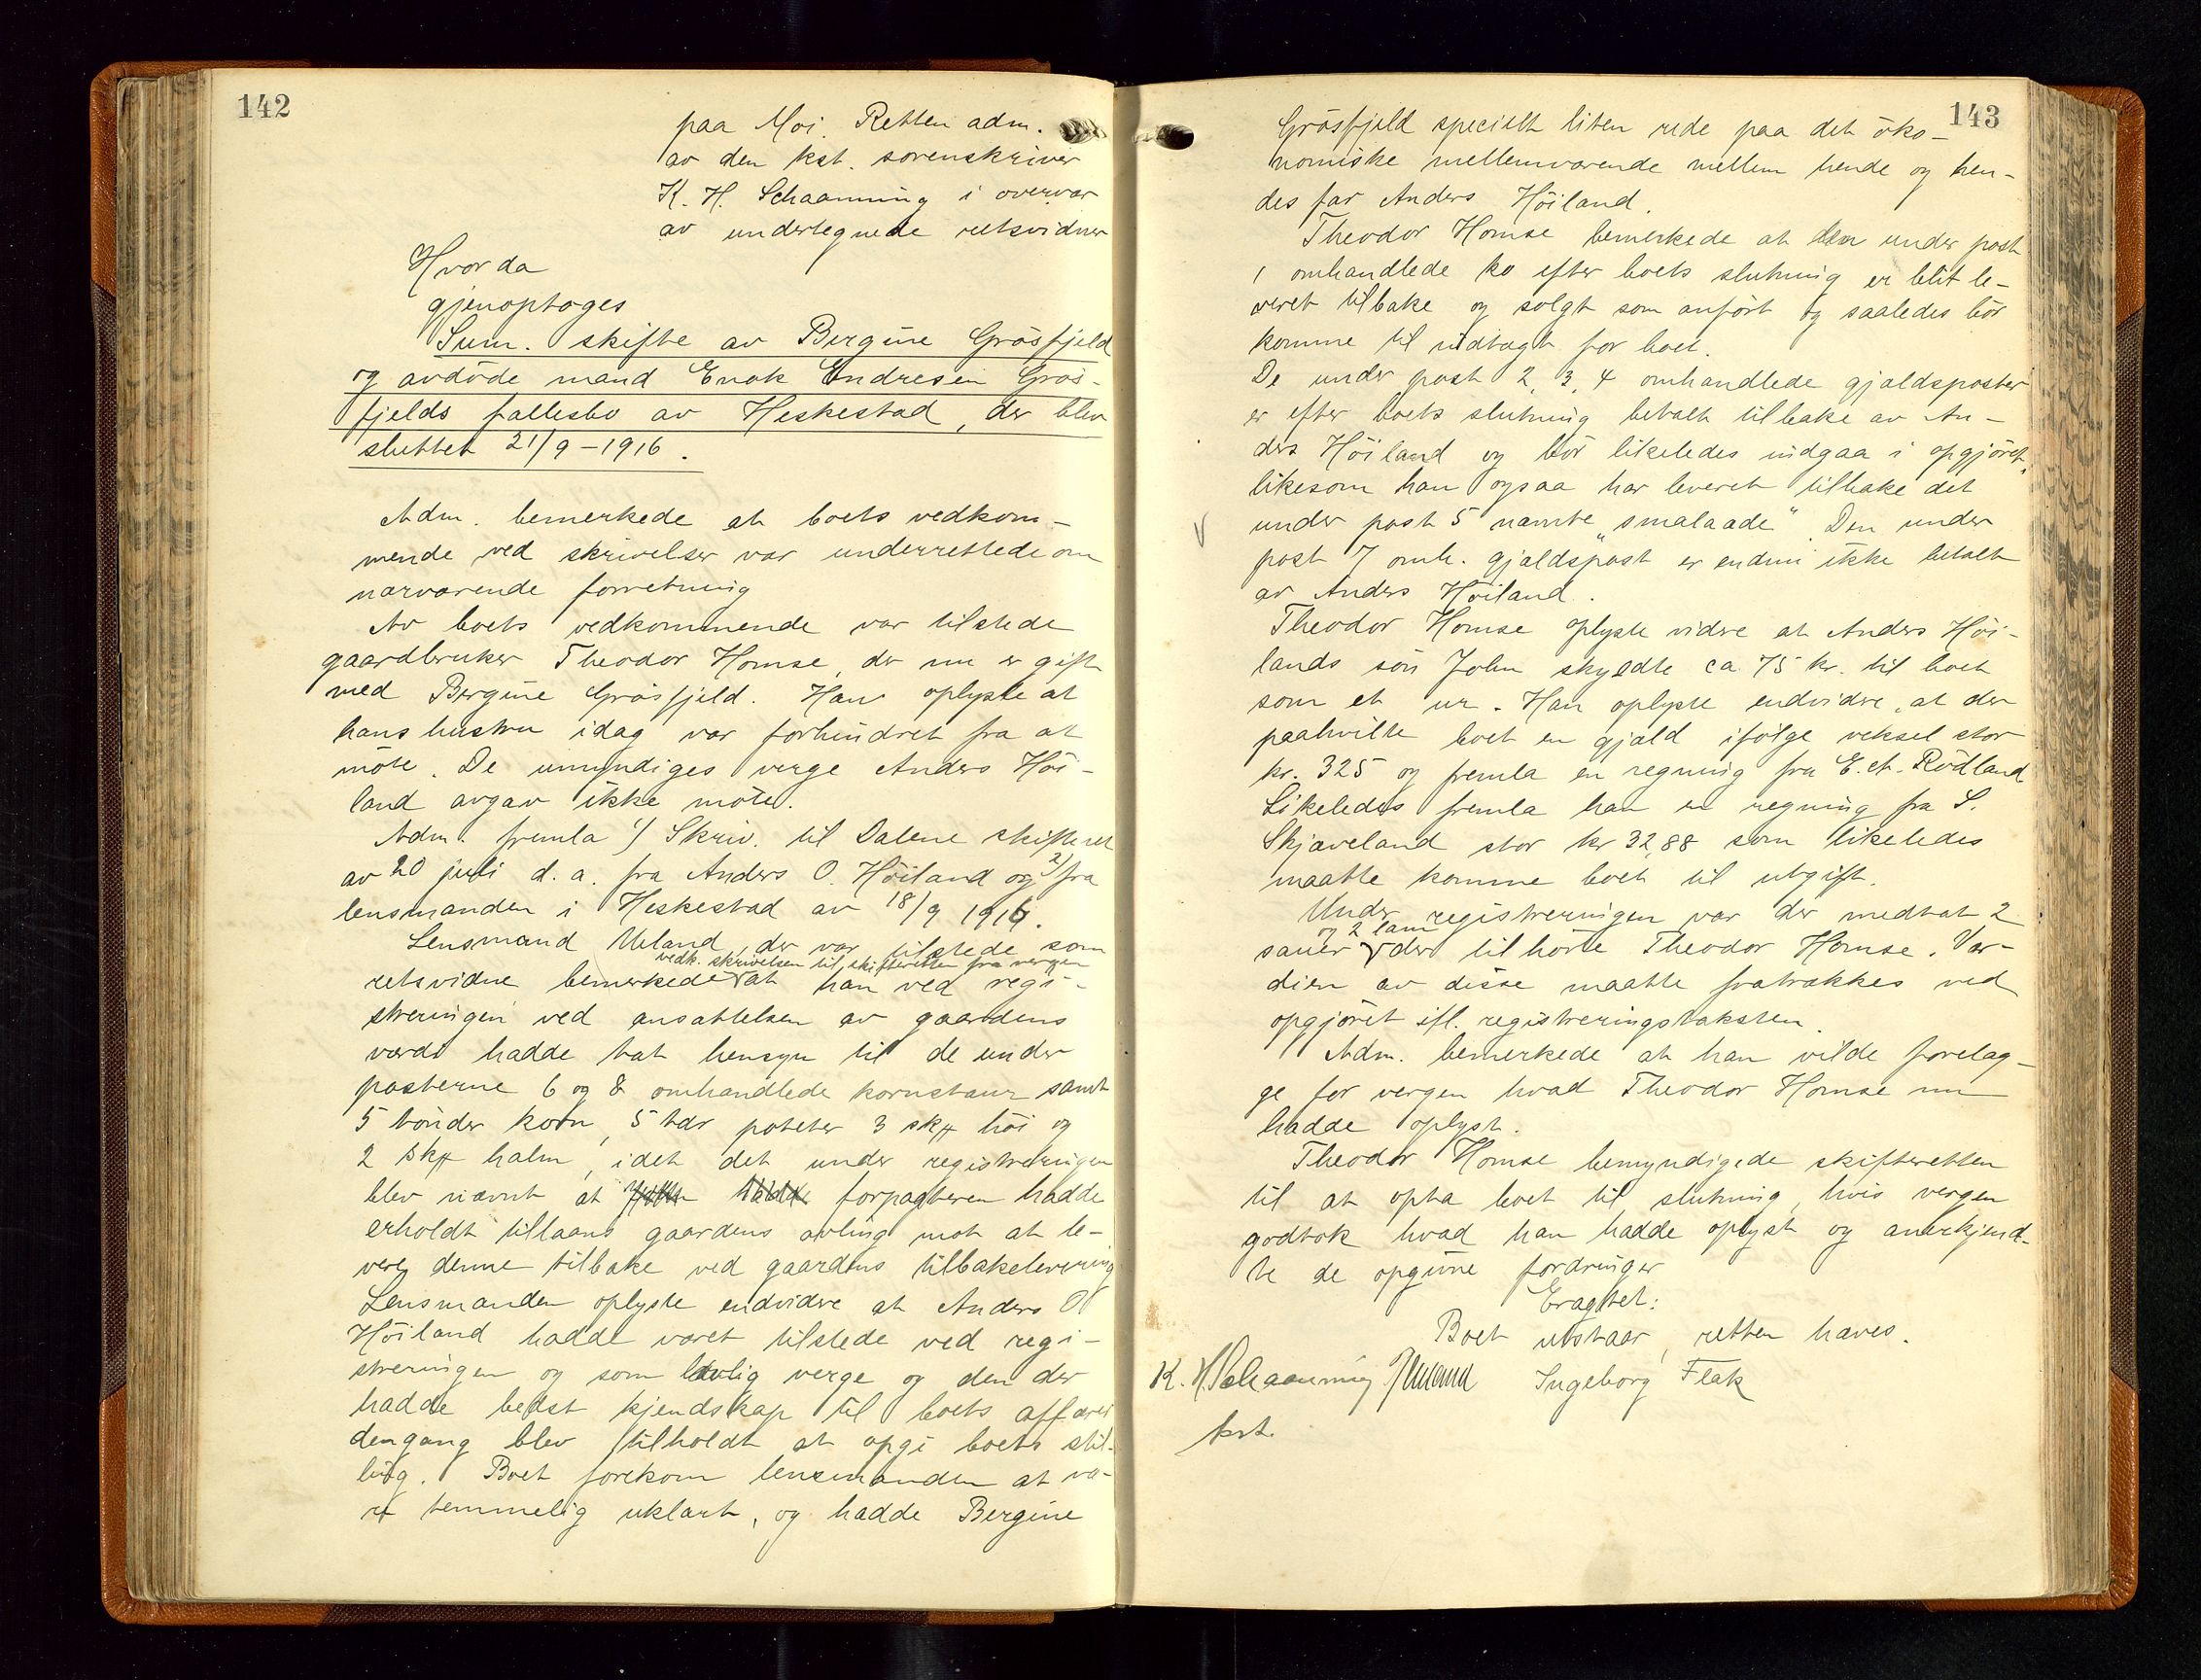 142
paa Moi. Retten adm.
av den kst. sorenskriver
K. H. Schaanning i overvær
av undertegnede retsvidner
Hvor da
gjenoptoges
Sum. skifte av Bergine Grösfjeld
og avdöde mand Enok Endresen Grös-
fjelds fællesbo av Heskestad, der blev
sluttet 21/9-1916.
Adm. bemerkede at boets vedkom-
mende ved skrivelser var underrettede om
nærværende forretning
Av boets vedkommende var tilstede
gaardbruker Theodor Homse, der nu er gift
med Bergine Grösfjeld. Han oplyste at
hans hustru idag var forhindret fra at
möte. De umyndiges verge Anders Höi-
land avgav ikke möte.
Adm. fremla 1) Skriv. til Dalene skifteret
av 20 juli d. a. fra Anders O. Höiland og 2) fra
lensmanden i Heskestad av 18/9 1916.
Lensmand Ueland, der var tilstede som
vedk. skrivelsen til skifteretten fra vergen
retsvidne bemerkede at han ved regi-
streringen ved ansættelsen av gaardens
værdi hadde tat hensyn til de under
posterne 6 og 8 omhandlede kornstaur samt
5 tönder korn, 5 tdr poteter 3 sk℔ höi og
2 sk℔ halm, idet det under registreringen
blev nævnt at forpagteren hadde
erholdt tillaans gaardens avling mot at le-
vere denne tilbake ved gaardens tilbakelevering
Lensmanden oplyste endvidre at Anders O
Höiland hadde været tilstede ved regi-
streringen og som lovlig verge og den der
hadde bedst kjendskap til boets affærer
dengang blev tilholdt at opgi boets stil-
ling. Boet forekom lensmanden at væ-
re temmelig uklart, og hadde Bergine
143
Grösfjeld specielt liten rede paa det öko-
nomiske mellemværende mellem hende og hen-
des far Anders Höiland.
Theodor Homse bemerkede at den under post
1 omhandlede ko efter boets slutning er blit le-
veret tilbake og solgt som anfört og saaledes bör
komme til indtægt for boet.
De under post 2, 3, 4 omhandlede gjældsposter
er efter boets slutning betalt tilbake av An-
ders Höiland og bör likeledes indgaa i opgjöret,
likesom han ogsaa har leveret tilbake det
under post 5 nævnte "smalaade". Den under
post 7 omh. gjældspost er endnu ikke betalt
av Anders Höiland.
Theodor Homse oplyste videre at Anders Höi-
lands sön John skyldte ca 75 kr. til boet
som et ur. Han oplyste endvidre, at der
paahvilte boet en gjæld ifölge veksel stor
kr. 325 og fremla en regning fra E. A. Rödland
Likeledes fremla han en regning fra S.
Skjæveland stor kr 32,88 som likeledes
maatte komme boet til utgift.
Under registreringen var der medtat 2
og 2 lam
sauer der tilhörte Theodor Homse. Vær-
dien av disse maatte fratrækkes ved
opgjöret ifl. registreringstaksten.
Adm. bemerkede at han vilde forelæg-
ge for vergen hvad Theodor Homse nu
hadde oplyst.
Theodor Homse bemyndigede skifteretten
til at opta boet til slutning, hvis vergen
godtok hvad han hadde oplyst og anerkjend-
te de opgivne fordringer
Eragtet:
Boet utstaar, retten hæves.
K. H. Schaanning Ueland Ingeborg Flek
kst.